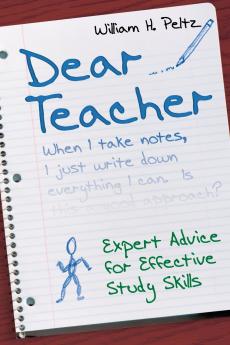 William H. Peltz
Dear
Teacher
When I take notes,
I just write down
everything I can. Is
approach?
Expert Advice
for Effective
Study Skills